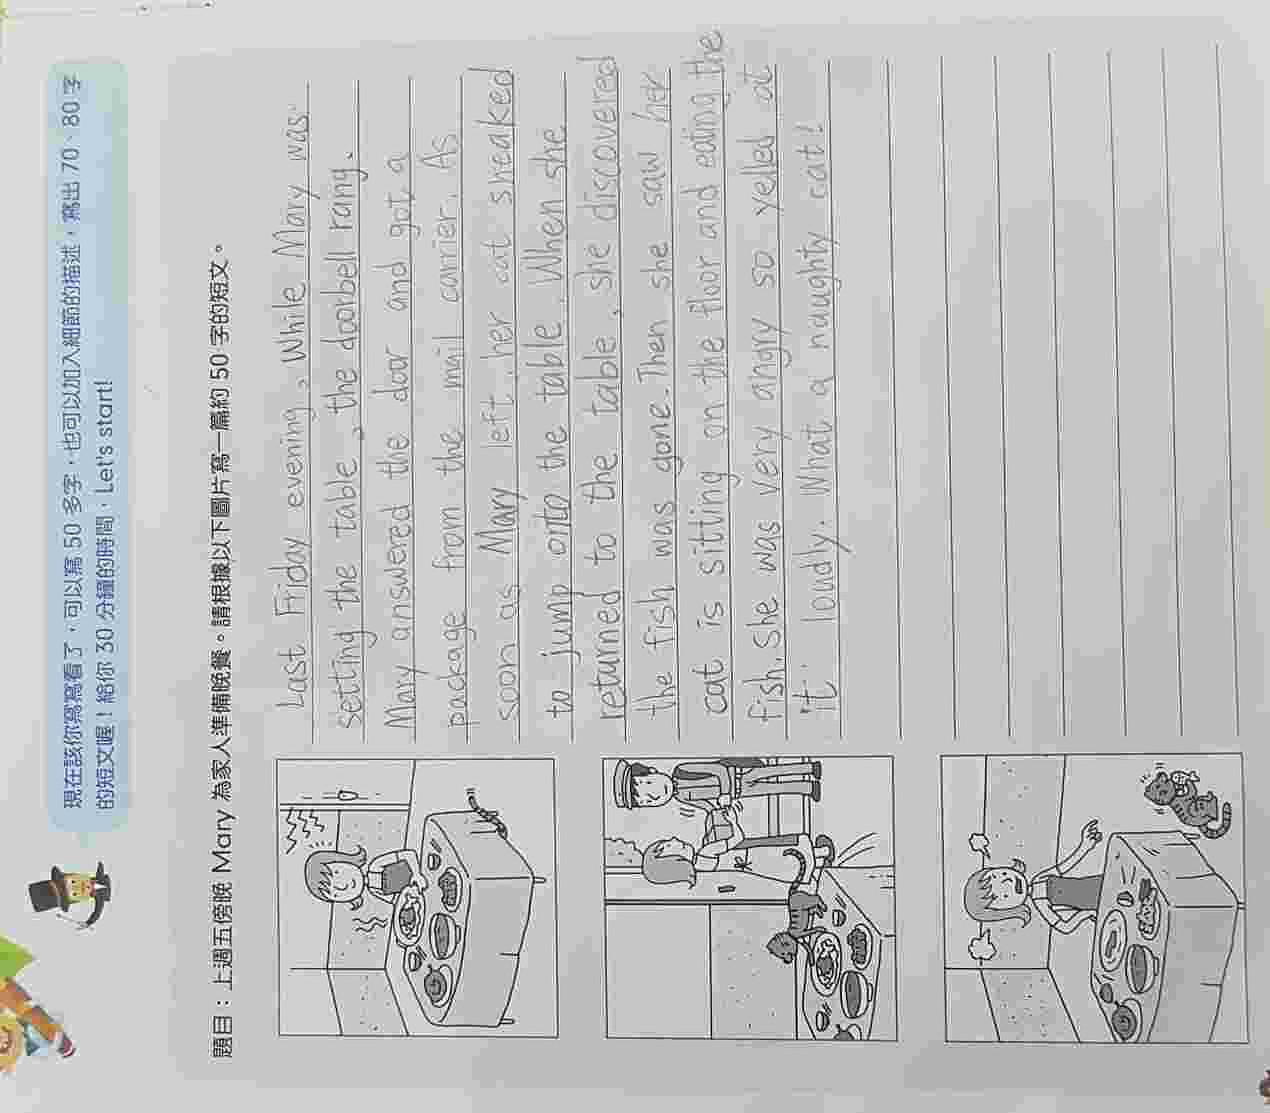 現在該你寫寫看了，可以寫 50 多字，也可以加入細節的描述，寫出 70、80 字
的短文喔！給你 30 分鐘的時間，Let's start!
題目：上週五傍晚 Mary 為家人準備晚餐。請根據以下圖片寫一篇約 50 字的短文。
Last Friday evening, While Mary was
setting the table, the doorbell rang.
Mary answered the door and got a
package from the mail carrier. As
soon as Mary left, her cat sneaked
to jump onto the table. When she
returned to the table, she discovered
the fish was gone. Then she saw her
cat is sitting on the floor and eating the
fish. She was very angry so yelled at
it loudly. What a naughty cat!